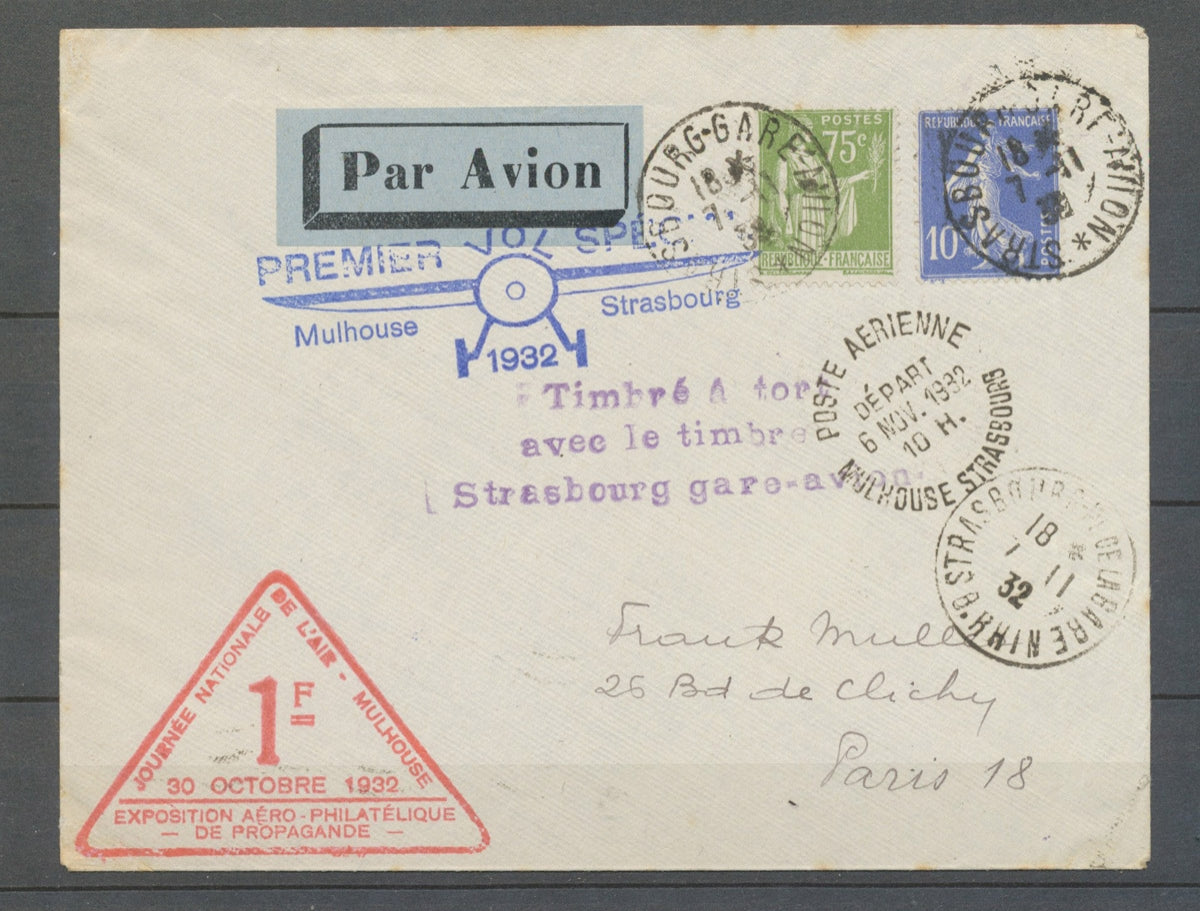 Par Avion
PREMIER VOL SPÉCIAL
Mulhouse
Strasbourg
1932
POSTES
75c
REPUBLIQUE-FRANÇAISE
REPUBLIQUE FRANÇAISE
10c
POSTES
STRASBOURG-GARE-AVION *
18 *
7 -11
32
STRASBOURG-GARE-AVION *
18 *
7 -11
Timbré à tort
avec le timbre
Strasbourg gare-avion
POSTE AERIENNE
DÉPART
6 NOV. 1932
10 H.
MULHOUSE STRASBOURG
STRASBOURG
DE LA GARE
18 *
7 11
32
Frank Muller
26 Bd de Clichy
Paris 18
JOURNÉE NATIONALE DE L'AIR - MULHOUSE
1F
30 OCTOBRE 1932
EXPOSITION AÉRO-PHILATÉLIQUE
— DE PROPAGANDE —